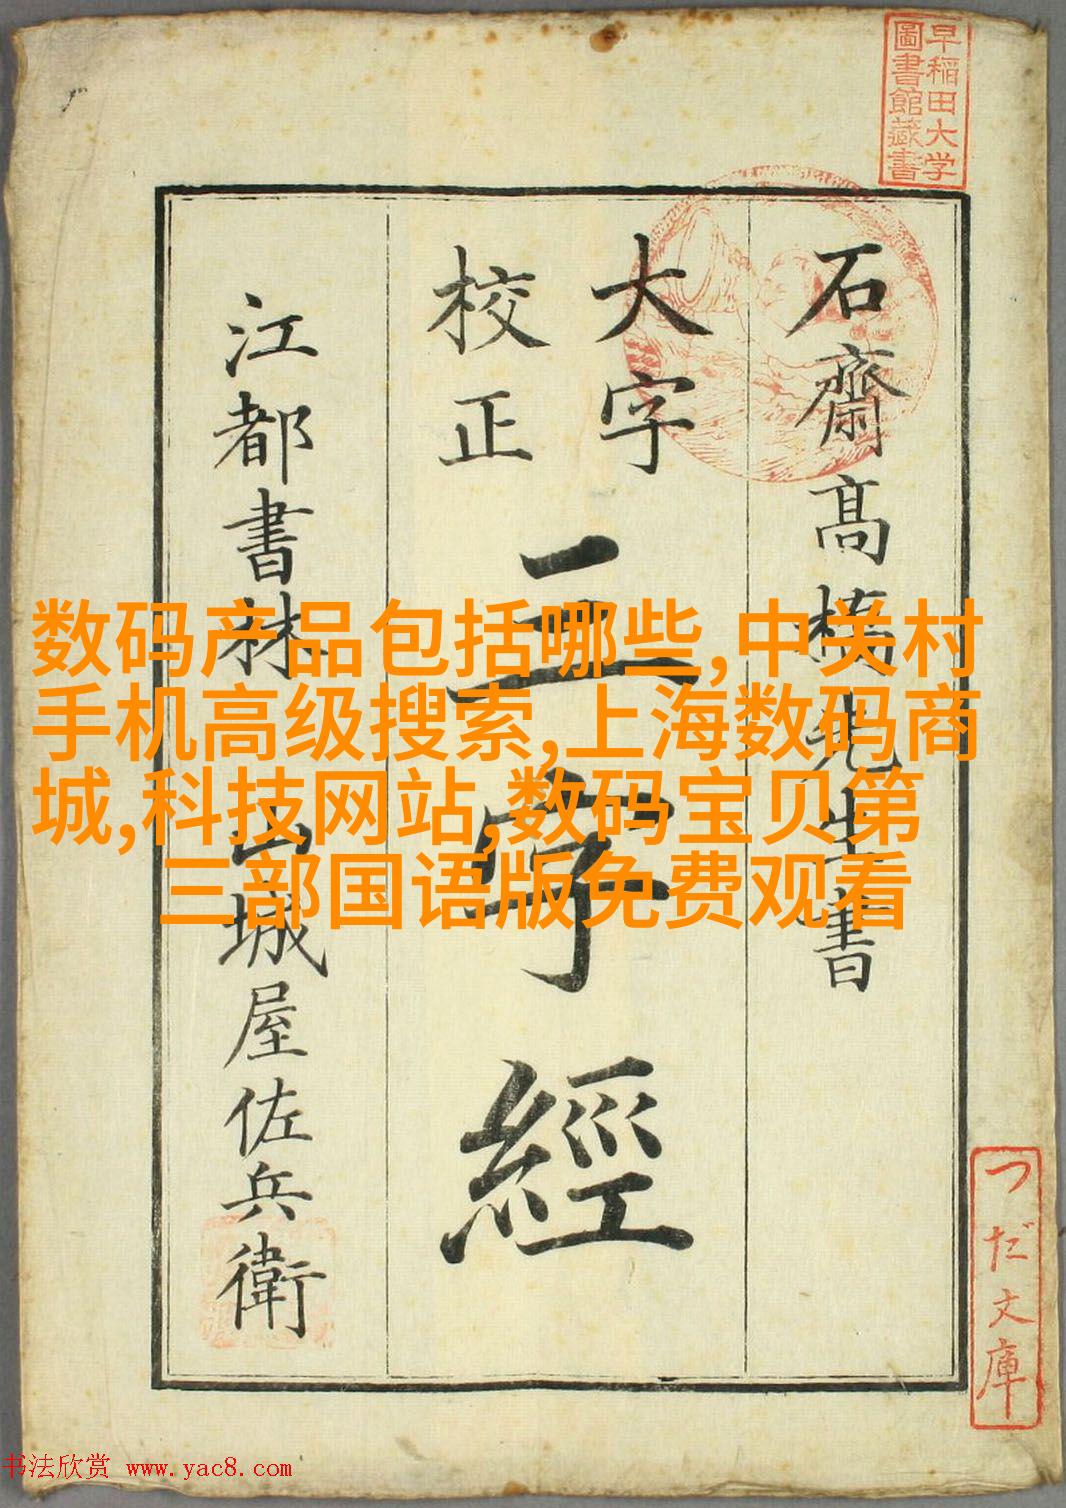 早稲田大学
圖書館藏書
石齋髙橋先生書
大字
校正
三字經
江都書林
山城屋佐兵衛
つだ文庫
数码产品包括哪些,中关村
手机高级搜索,上海数码商
城,科技网站,数码宝贝第
三部国语版免费观看
书法欣赏 www.yac8.com